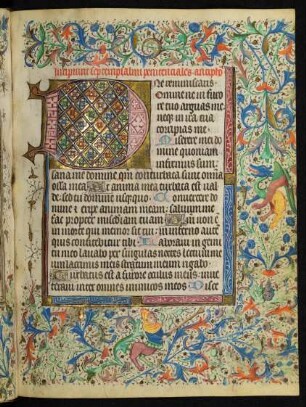 Incipiunt septem psalmi penitentiales antipho
Ne reminiscaris
Domine ne in furo
re tuo arguas me
neq; in ira tua
corripias me
Miserere mei do
mine quoniam
infirmus sum
sana me domine quoniam conturbata sunt omnia
ossa mea Et anima mea turbata est val
de sed tu domine usquequo Convertere do
mine et eripe animam meam salvum me
fac propter misericordiam tuam Quoniam non est
in morte qui memor sit tui in inferno aut
quis confitebitur tibi Laboravi in gemi
tu meo lavabo per singulas noctes lectum me
um lacrimis meis stratum meum rigabo
Turbatus est a furore oculus meus inve
teravi inter omnes inimicos meos Disce